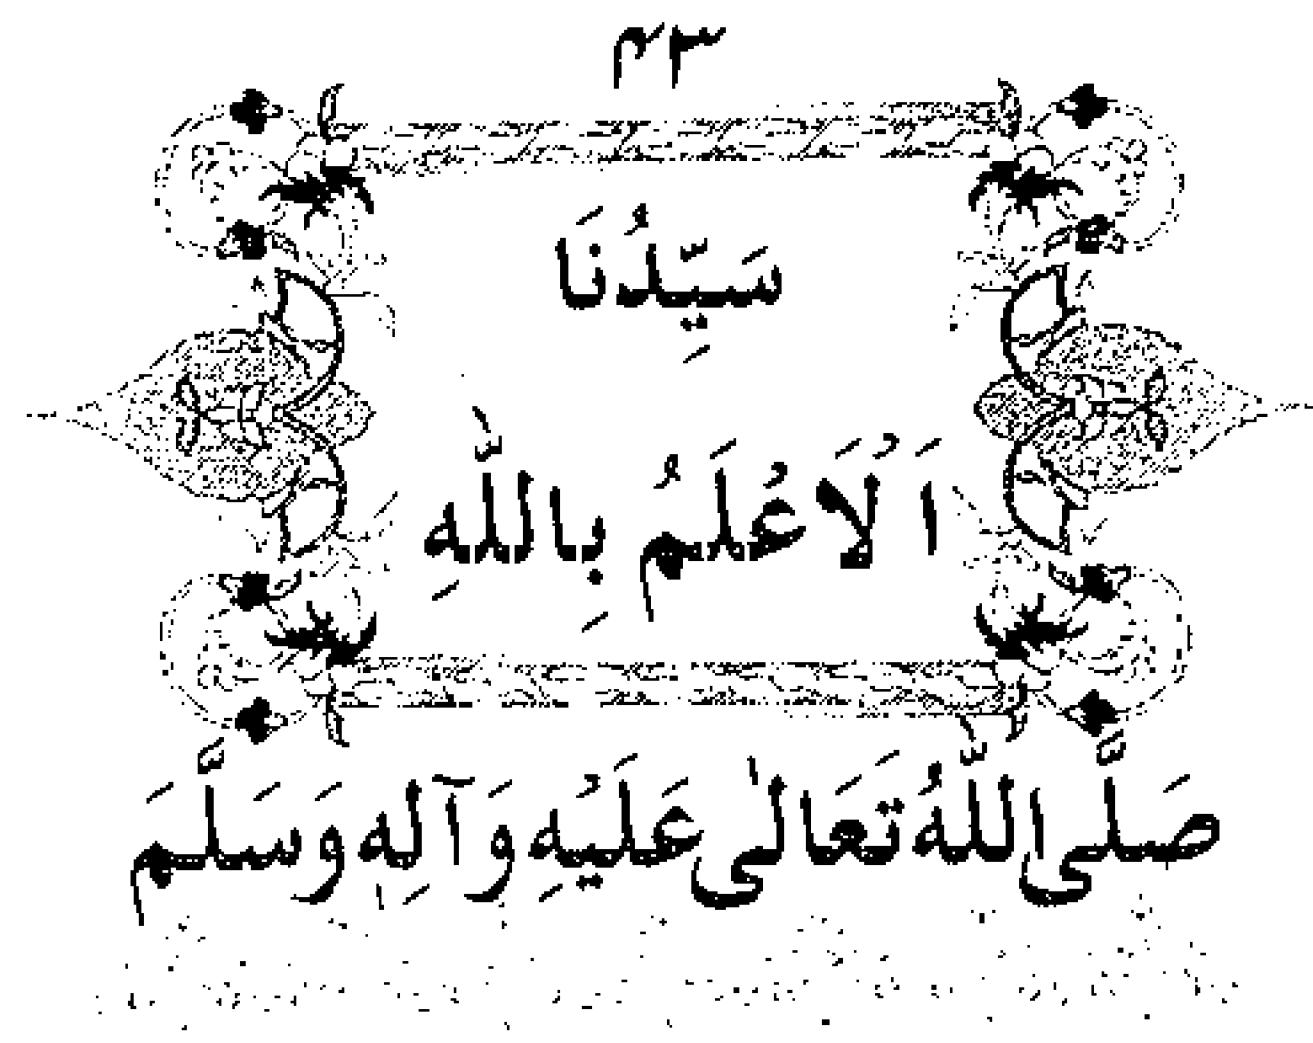 ۴۳
سَيِّدُنَا
اَلْاَعْلَمُ بِاللّٰهِ
صَلَّى اللّٰهُ تَعَالٰى عَلَيْهِ وَآلِهٖ وَسَلَّمَ